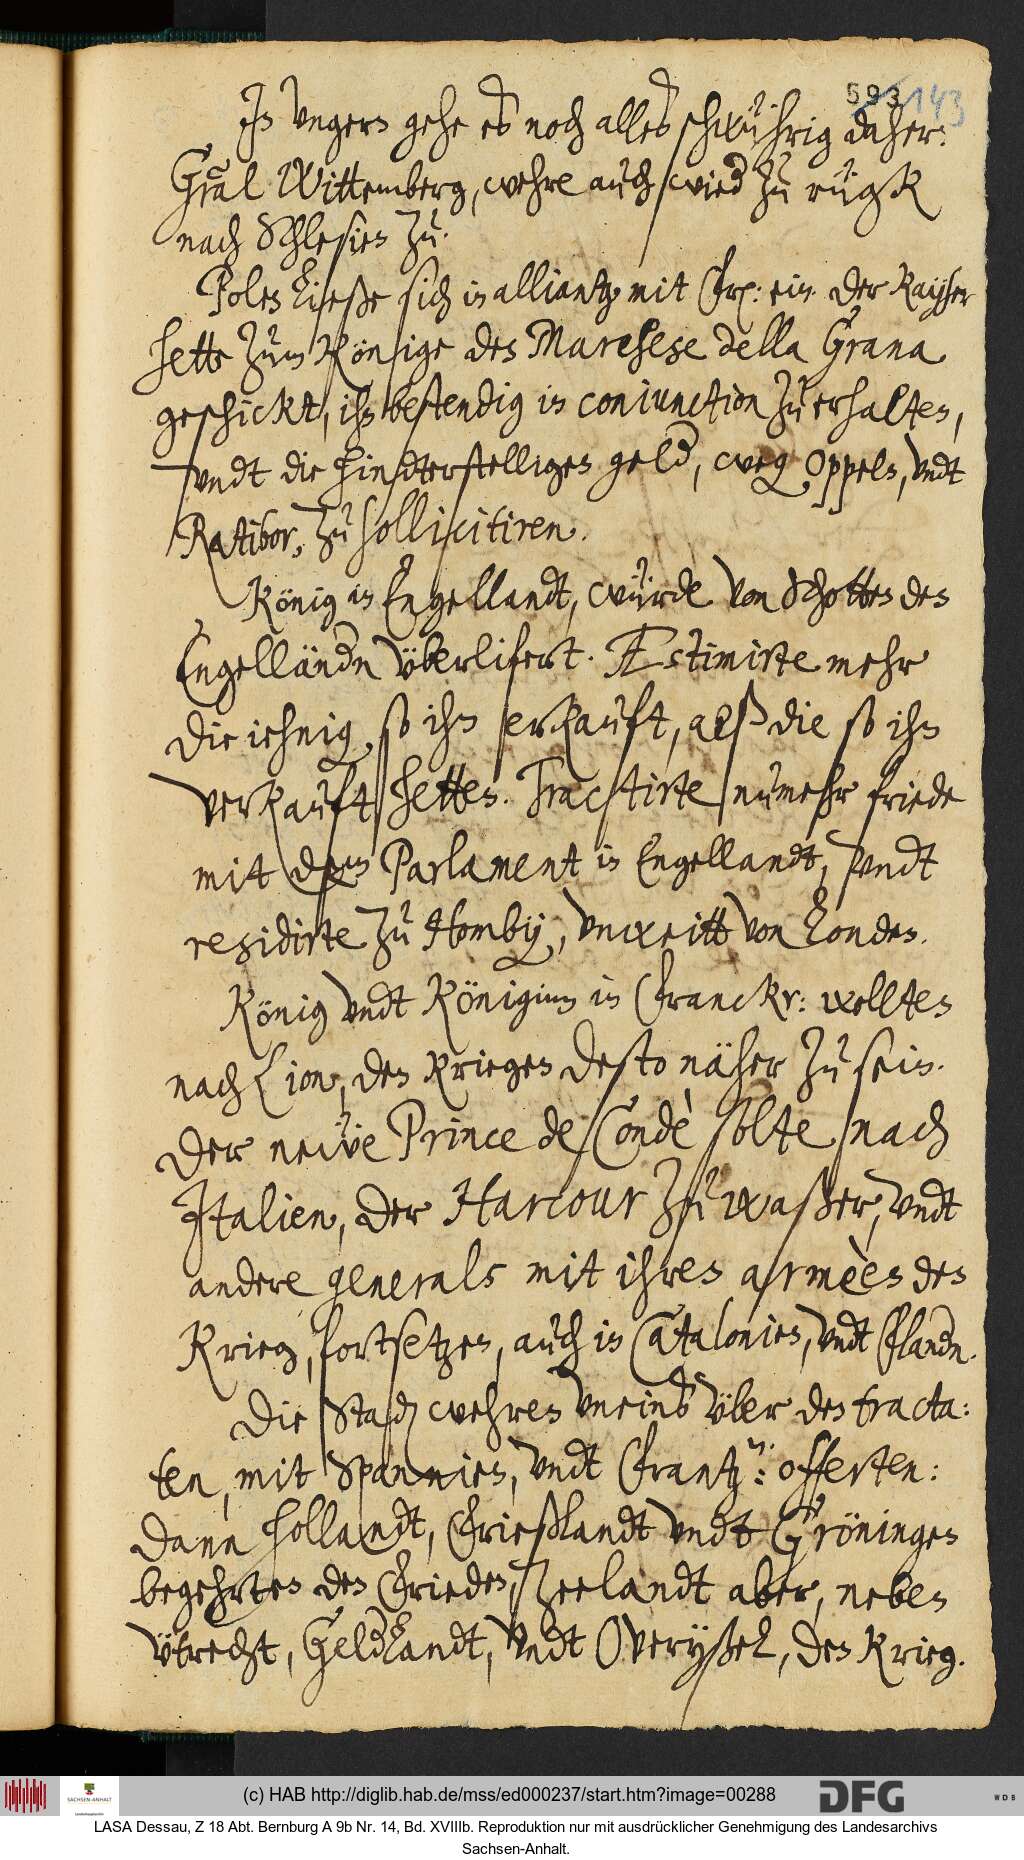 593 143
In Ungern gehe es noch alles schwührig daher:
Gräl Wittemberg, wehre auch wied zu rügk
nach Schlesien zu.
Polen ließe sich in alliantz mit Fr: ein. Der Kayser
hette zum Könige den Marchese della Grana
geschickt, ihn bestendig in conjunction zu erhalten,
undt die hindterstelligen geld, weg Oppeln, undt
Ratibor, zu sollicitiren.
König in Engellandt, würde von Schotten den
Engelländn überlifert. Æstimirte mehr
die iehnig, so ihn erkauft, alß die so ihn
verkauft hetten. Tractirte numehr friede
mit dem Parlament in Engellandt, undt
residirte zu Homby, unweitt von Londen.
König undt Königinn in Franckr: wollten
nach Lion, den kriegen desto näher zu sein.
Der neüe Prince de Condè solte nach
Italien, der Harcour zu waßer, undt
andere generals mit ihren armèen den
Krieg, fortsetzen, auch in Catalonien, undt Flandn.
Die Stad, wehren uneins über den tracta:
ten, mit Spannien, undt Frantz: offerten:
Dann Hollandt, Frießlandt undt Gröningen
begehrten den Frieden, Zeelandt aber, neben
Ütrecht, Geldlandt, undt Overyßel, den Krieg.
(c) HAB http://diglib.hab.de/mss/ed000237/start.htm?image=00288
SACHSEN-ANHALT
DFG
WDB
LASA Dessau, Z 18 Abt. Bernburg A 9b Nr. 14, Bd. XVIIIb. Reproduktion nur mit ausdrücklicher Genehmigung des Landesarchivs
Sachsen-Anhalt.